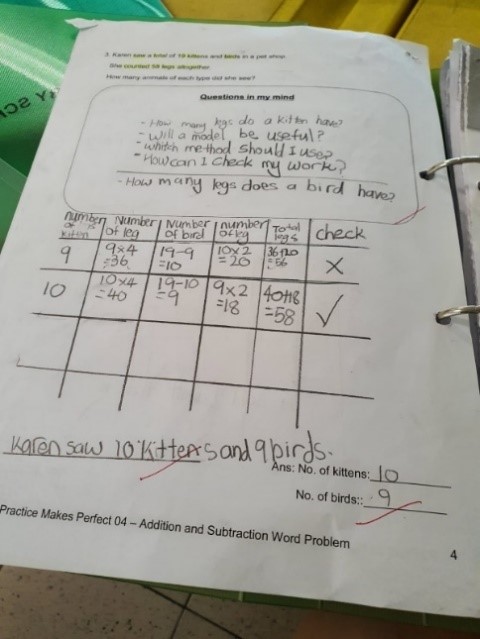 3. Karen saw a total of 19 kittens and birds in a pet shop.
She counted 58 legs altogether.
How many animals of each type did she see?
Questions in my mind
- How many legs do a kitten have?
- Will a model be useful?
- Whitch method should I use?
- How can I check my work?
- How many legs does a bird have?
number of kitten | Number of leg | Number of bird | number of leg | Total legs | check
9 | 9x4 =36 | 19-9 =10 | 10x2 =20 | 36+20 =56 | X
10 | 10x4 =40 | 19-10 =9 | 9x2 =18 | 40+18 =58 | ✓
Karen saw 10 kittens and 9 birds.
Ans: No. of kittens: 10
No. of birds:: 9
Practice Makes Perfect 04 – Addition and Subtraction Word Problem
4